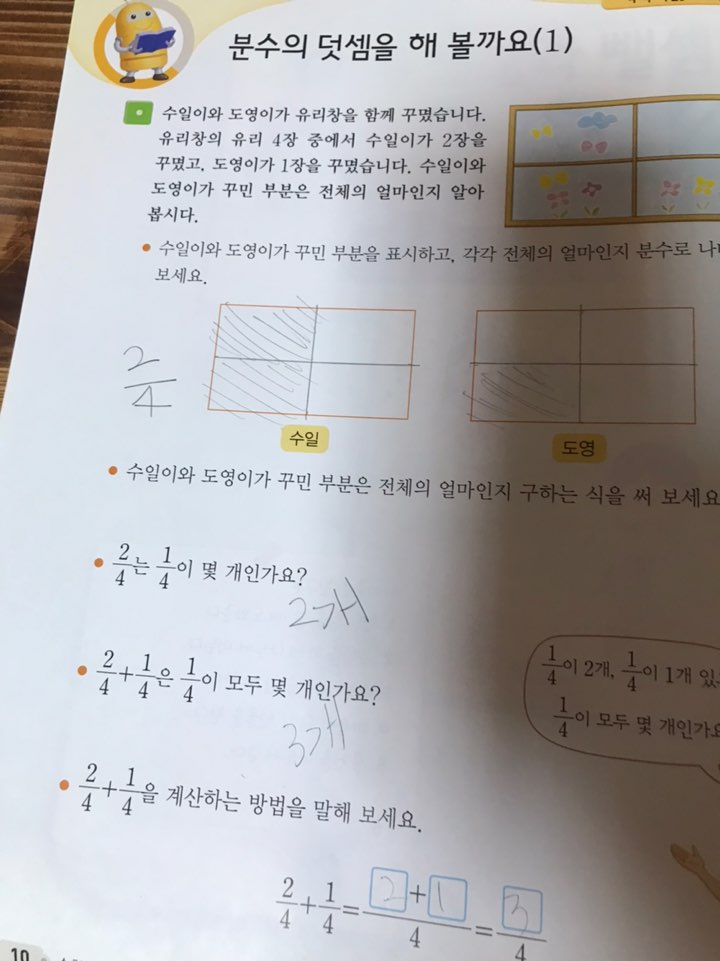 분수의 덧셈을 해 볼까요(1)
수일이와 도영이가 유리창을 함께 꾸몄습니다.
유리창의 유리 4장 중에서 수일이가 2장을
꾸몄고, 도영이가 1장을 꾸몄습니다. 수일이와
도영이가 꾸민 부분은 전체의 얼마인지 알아
봅시다.
수일이와 도영이가 꾸민 부분을 표시하고, 각각 전체의 얼마인지 분수로
보세요.
2/4
수일 도영
수일이와 도영이가 꾸민 부분은 전체의 얼마인지 구하는 식을 써 보세요
2/4는 1/4이 몇 개인가요?
2개
2/4+1/4은 1/4이 모두 몇 개인가요?
3개
1/4이 2개, 1/4이 1개
1/4이 모두 몇
2/4+1/4을 계산하는 방법을 말해 보세요.
2/4+1/4=2+1/4=3/4
10